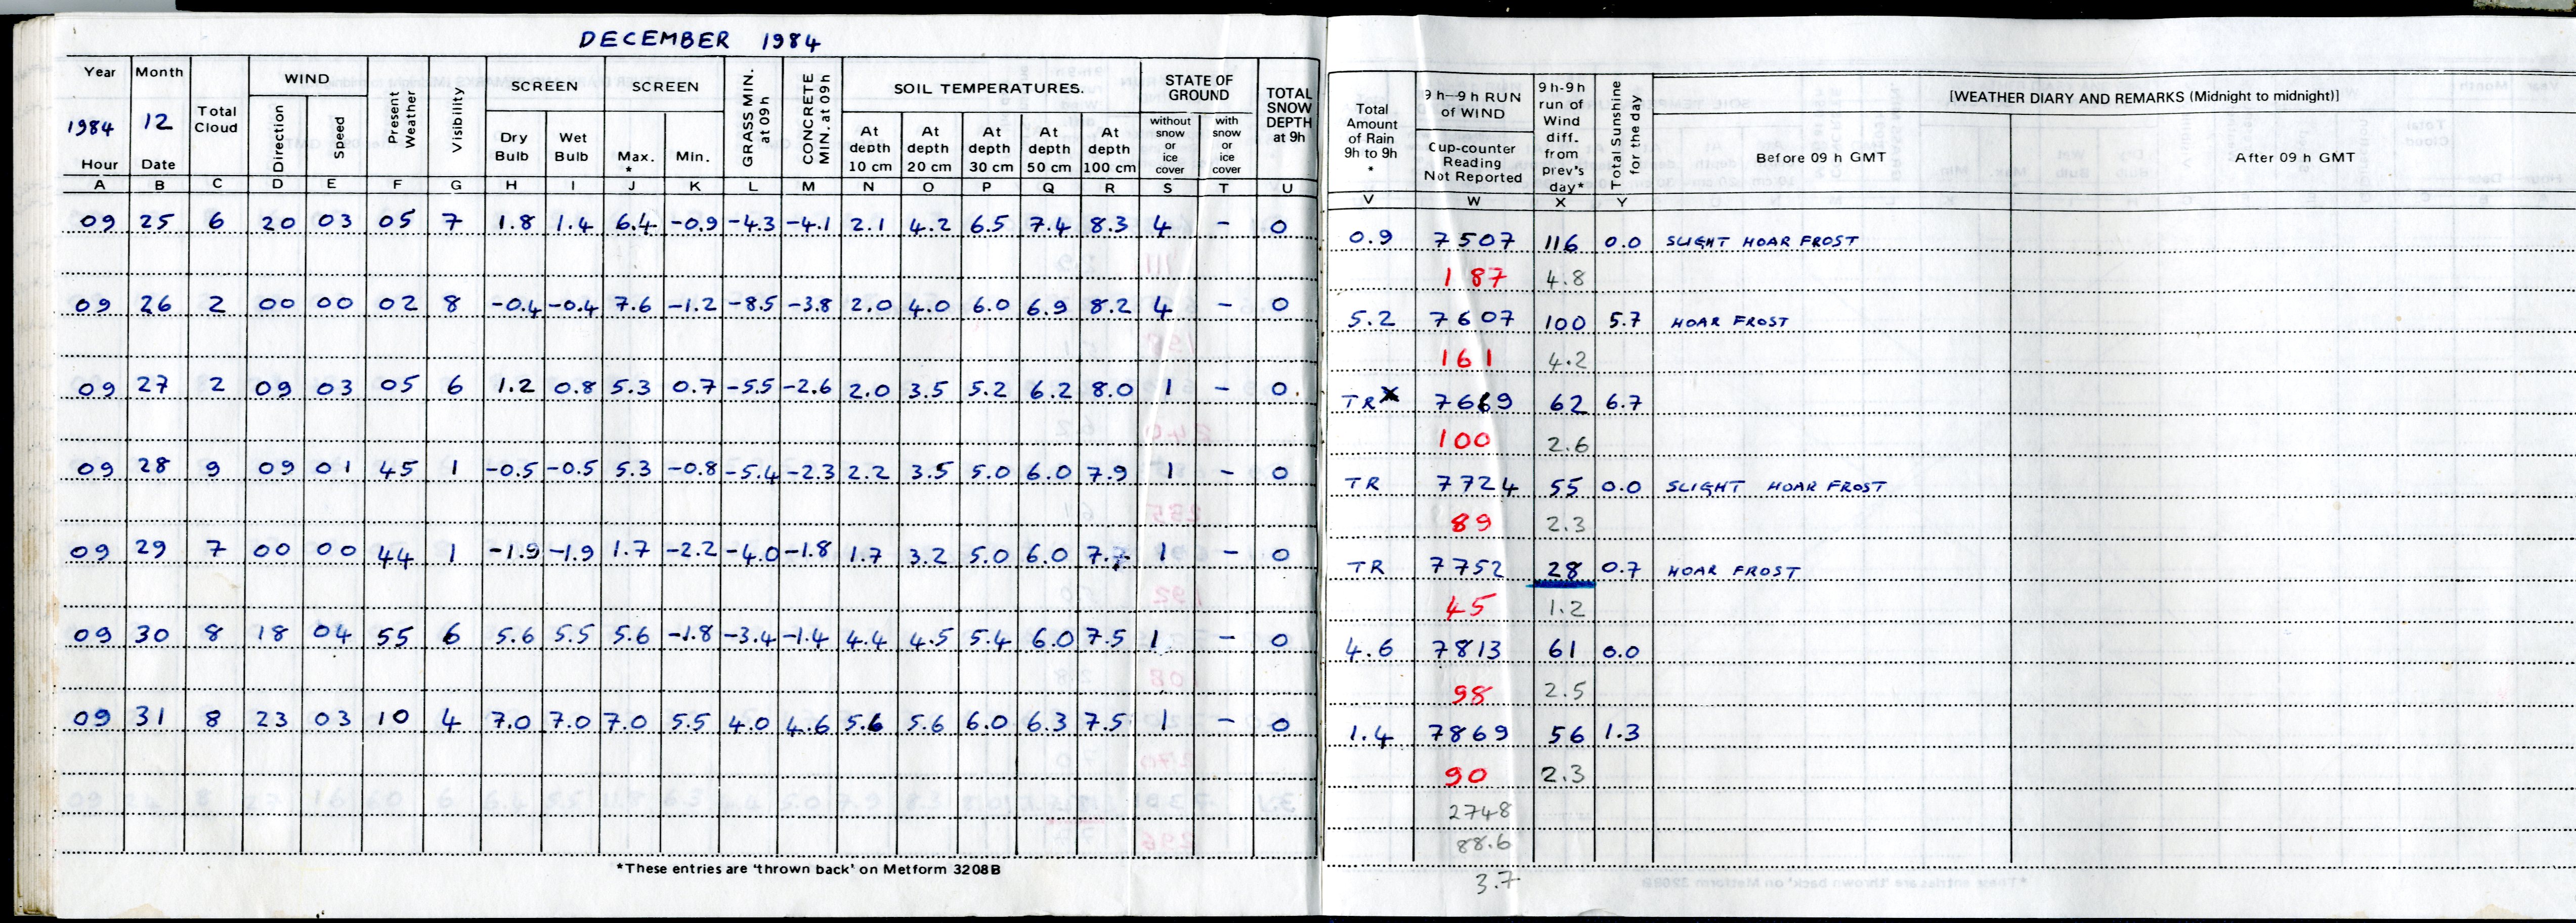 DECEMBER 1984
Year Month Total Cloud WIND Present Weather Visibility SCREEN SCREEN GRASS MIN. at 09h CONCRETE MIN. at 09h SOIL TEMPERATURES. STATE OF GROUND TOTAL SNOW DEPTH at 9h Total Amount of Rain 9h to 9h * 9h–9h RUN of WIND 9h-9h run of Wind diff. from prev's day* Total Sunshine for the day [WEATHER DIARY AND REMARKS (Midnight to midnight)]
1984 12 Direction Speed Dry Bulb Wet Bulb Max. * Min. At depth 10 cm At depth 20 cm At depth 30 cm At depth 50 cm At depth 100 cm without snow or ice cover with snow or ice cover Cup-counter Reading Not Reported Before 09 h GMT After 09 h GMT
Hour Date
A B C D E F G H I J K L M N O P Q R S T U V W X Y
09 25 6 20 03 05 7 1.8 1.4 6.4 -0.9 -4.3 -4.1 2.1 4.2 6.5 7.4 8.3 4 – 0 0.9 7507 116 0.0 SLIGHT HOAR FROST
187 4.8
09 26 2 00 00 02 8 -0.4 -0.4 7.6 -1.2 -8.5 -3.8 2.0 4.0 6.0 6.9 8.2 4 – 0 5.2 7607 100 5.7 HOAR FROST
161 4.2
09 27 2 09 03 05 6 1.2 0.8 5.3 0.7 -5.5 -2.6 2.0 3.5 5.2 6.2 8.0 1 – 0 TR X 7669 62 6.7
100 2.6
09 28 9 09 01 45 1 -0.5 -0.5 5.3 -0.8 -5.4 -2.3 2.2 3.5 5.0 6.0 7.9 1 – 0 TR 7724 55 0.0 SLIGHT HOAR FROST
89 2.3
09 29 7 00 00 44 1 -1.9 -1.9 1.7 -2.2 -4.0 -1.8 1.7 3.2 5.0 6.0 7.7 1 – 0 TR 7752 28 0.7 HOAR FROST
45 1.2
09 30 8 18 04 55 6 5.6 5.5 5.6 -1.8 -3.4 -1.4 4.4 4.5 5.4 6.0 7.5 1 – 0 4.6 7813 61 0.0
98 2.5
09 31 8 23 03 10 4 7.0 7.0 7.0 5.5 4.0 4.6 5.6 5.6 6.0 6.3 7.5 1 – 0 1.4 7869 56 1.3
90 2.3
2748
88.6
3.7
*These entries are 'thrown back' on Metform 3208B